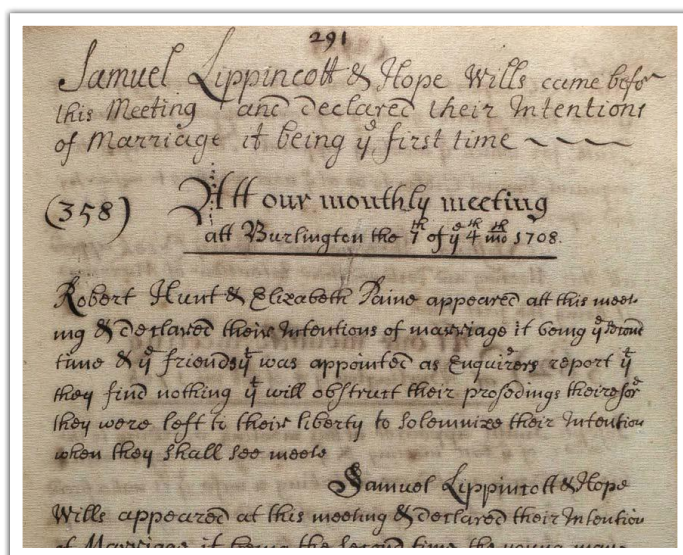 291
Samuel Lippincott & Hope Wills came befor
this Meeting and declared their Intentions
of Marriage it being yᵉ first time
(358) Att our monthly meeting
att Burlington the 7ᵗʰ of yᵉ 4ᵗʰ mo 1708.
Robert Hunt & Elizabeth Paine appeared att this meet-
ing & declared their Intentions of marriage it being yᵉ second
time & yᵉ friends yᵗ was appointed as Enquirers report yᵗ
they find nothing yᵗ will obstruct their prosedings theirefor
they were left to their liberty to solemnize their Intention
when they shall see meete
Samuel Lippincott & Hope
Wills appeared at this meeting & declared their Intention
of Marriage it being the second time the young mans